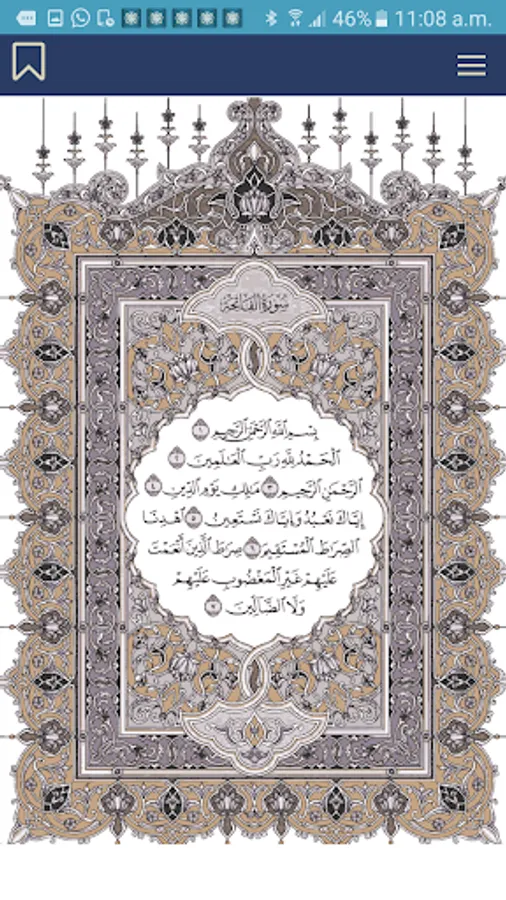 46% 11:08 a.m.
سورة الفاتحة
بِسْمِ ٱللَّهِ ٱلرَّحْمَٰنِ ٱلرَّحِيمِ ١
ٱلْحَمْدُ لِلَّهِ رَبِّ ٱلْعَٰلَمِينَ ٢
ٱلرَّحْمَٰنِ ٱلرَّحِيمِ ٣ مَٰلِكِ يَوْمِ ٱلدِّينِ ٤
إِيَّاكَ نَعْبُدُ وَإِيَّاكَ نَسْتَعِينُ ٥ ٱهْدِنَا
ٱلصِّرَٰطَ ٱلْمُسْتَقِيمَ ٦ صِرَٰطَ ٱلَّذِينَ أَنْعَمْتَ
عَلَيْهِمْ غَيْرِ ٱلْمَغْضُوبِ عَلَيْهِمْ
وَلَا ٱلضَّآلِّينَ ٧